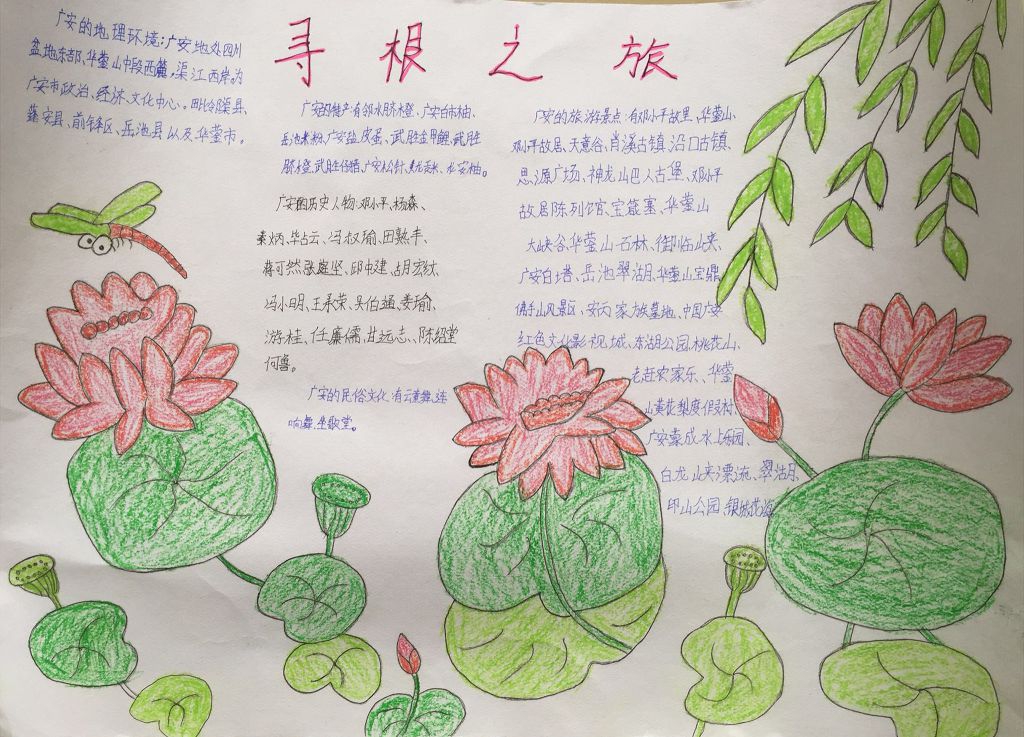 寻根之旅
广安的地理环境:广安地处四川
盆地东部、华蓥山中段西麓,渠江西岸。为
广安市政治、经济、文化中心。毗邻渠县、
蓬安县、前锋区、岳池县以及华蓥市。
广安的特产:有邻水脐橙、广安白市柚、
岳池米粉、广安盐皮蛋、武胜金甲鲤、武胜
脐橙、武胜仔猪、广安松针、黄龙贡米、龙安柚。
广安的历史人物:邓小平、杨森、
秦炳、毕占云、冯叔瑜、田熟丰、
蒋可然、张庭坚、邱中建、胡宏纹、
冯小明、王承荣、吴伯通、姜瑜、
游桂、任廉儒、甘远志、、陈绍堂
何鲁。
广安的民俗文化:有云童舞、连
响舞、坐歌堂。
广安的旅游景点:有邓小平故里、华蓥山、
邓小平故居、天意谷、肖溪古镇、沿口古镇、
思源广场、神龙山巴人古堡、邓小平
故居陈列馆、宝箴塞、华蓥山
大峡谷、华蓥山石林、御临山峡、
广安白塔、岳池翠湖、华蓥山宝鼎、
佛手山风景区、安丙家族墓地、中国广安
红色文化影视城、东湖公园、桃花山、
老赶农家乐、华蓥
山黄花梨度假村、
广安菜成水上乐园、
白龙山夹漂流、翠沽月、
印山公园、银城花海